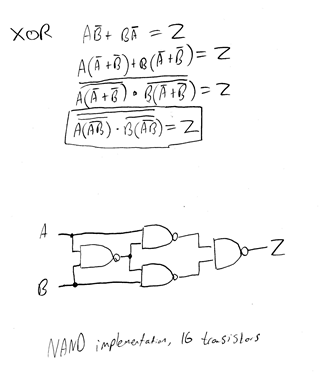 XOR AB̅ + BA̅ = Z
A(A̅+B̅)+B(A̅+B̅) = Z
\overline{\overline{A(A̅+B̅)} · \overline{B(A̅+B̅)}} = Z
\overline{\overline{A(\overline{AB})} · \overline{B(\overline{AB})}} = Z
A
B
Z
NAND implementation, 16 transistors